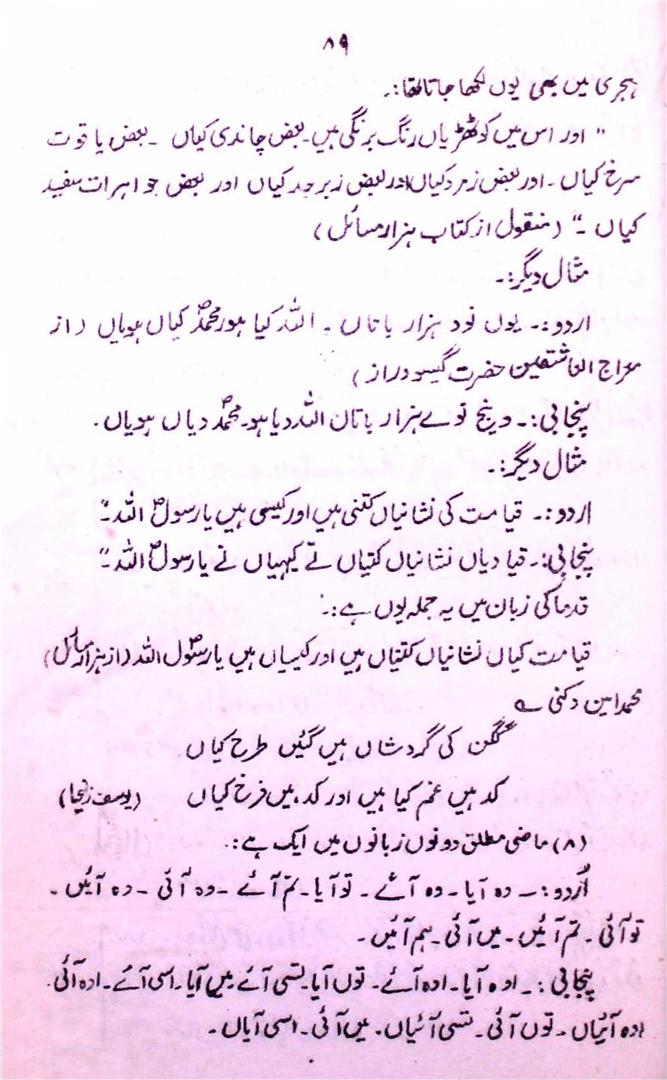 ۸۹
ہجری میں بھی یوں لکھا جاتا تھا:۔
" اور اس میں کوٹھڑیاں رنگ برنگی ہیں۔ بعض چاندی کیاں ۔ بعض یاقوت
سرخ کیاں ۔ اور بعض زمرد کیاں اور بعض زبرجد کیاں اور بعض جواہرات سفید
کیاں ۔" (منقول از کتاب ہزار مسائل)
مثال دیگر:۔
اردو:۔ یوں نود ہزار باتاں ۔ اللہ کیا ہور محمدؐ کیاں ہویاں (از
معراج العاشقین حضرت گیسو دراز)
پنجابی:۔ ونج نوے ہزار باتاں اللہ دیا ہور محمدؐ دیاں ہویاں۔
مثال دیگر:۔
اردو:۔ قیامت کی نشانیاں کتنی ہیں اور کیسی ہیں یا رسولؐ اللہ۔"
پنجابی:۔ قیا دیاں نشانیاں کتیاں تے کیہیاں نے یا رسولؐ اللہ۔"
قدما کی زبان میں یہ جملہ یوں ہے:۔
قیامت کیاں نشانیاں کتنیاں ہیں اور کیسیاں ہیں یا رسولؐ اللہ (از ہزار مسائل)
محمد امین دکنی ؎
گگن کی گردشاں ہیں گئیں طرح کیاں
کد ہیں غم کیا ہیں اور کد ہیں فرخ کیاں (یوسف زلیخا)
(۸) ماضی مطلق دونوں زبانوں میں ایک ہے:۔
اُردو:۔ وہ آیا۔ وہ آئے۔ تو آیا۔ تم آئے ۔ وہ آئی ۔ وہ آئیں ۔
تو آئی۔ تم آئیں ۔ میں آئی۔ ہم آئیں ۔
پنجابی:۔ اوہ آیا۔ اوہ آئے۔ توں آیا۔ تسی آئے میں آیا۔ اسی آئے۔ اوہ آئی۔
اوہ آئیاں۔ توں آئی۔ تسی آئیاں۔ میں آئی۔ اسی آیاں۔